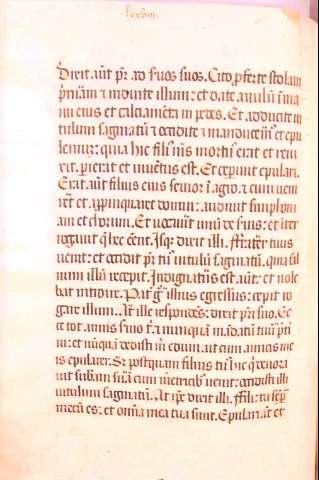 lxxviii.
Dixit aūt pr̄ ad suos suos. Cito proferte stolam
p̄mam ⁊ induite illum: et date anulū ī ma
nu eius et calciamēta in pedes. Et adducite vi
tulum saginatū ⁊ occidite ⁊ manducem᷒ et epu
lemur: quia hic fili᷒ m̄s mortu᷒ erat et reui
xit. perierat et inuētus est. Et ceperunt epulari.
Erat aūt filius eius senior ī agro. ⁊ cum veni
ret et appinquaret domui: audiuit simphoni
am et chorum. Et vocauit unū de suis: et iter
rogauit q̄ hec eēnt. Isq̄ dixit illi. frater tuus
uenit: et occidit pr̄ tu᷒ uitulū saginatū. quia sal
uum illū recepit. Indignatus est aūt: et nole
bat introire. Pat̄ g᷒ illius egressus: cepit ro
gare illum. At ille respondēs: dixit pr̄i suo. Ec
ce tot annis seruio t̄ ⁊ nunquā mādatū tuū p̄teri
ui: et nūquā dedisti m̄ edum. ut cum amicis me
is epularer. Sz postquam filius tu᷒ hic q̄ deuora
uit subam suā cum m̄etricib᷒ uenit: occidisti illi
uitulum saginatū. At ip̄e dixit illi. fili: tu semp
mecū es: et om̄ia mea tua sunt. Epulari aūt et